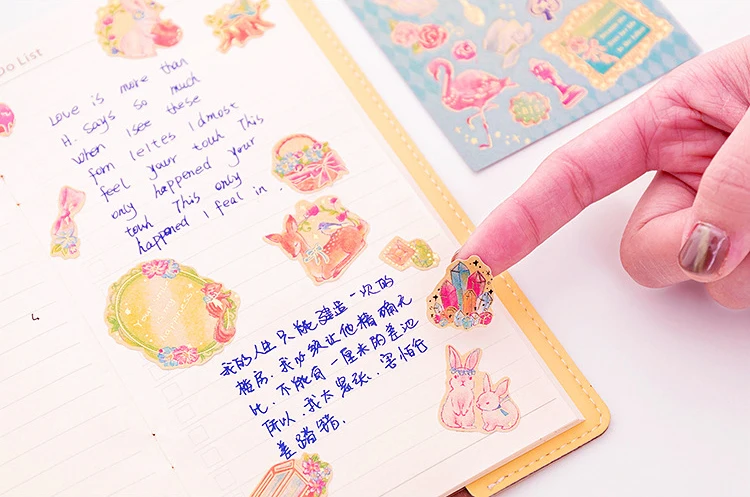 Do List
Love is more than
H. Says so much
when I see these
form leltes I dmost
feel your touh This
only happened your
touh This only
happened I feal in.
我的人生只能建造一次的
楼房,我必须让他精确无
比,不能有一厘米的差池
所以,我太紧张,害怕行
差踏错.